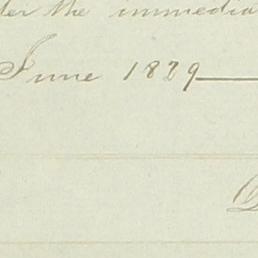 der the immedia
June 1829